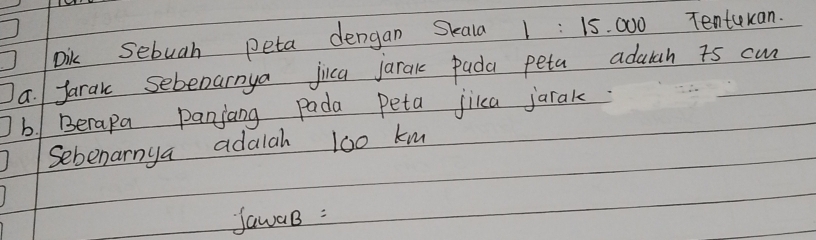 Dik Sebuah peta dengan Skala 1 : 15.000 Tentukan.
a. Jarak Sebenarnya jika jarak pada peta adalah 75 cm
b. Berapa panjang pada peta jika jarak
Sebenarnya adalah 100 km
JawaB :